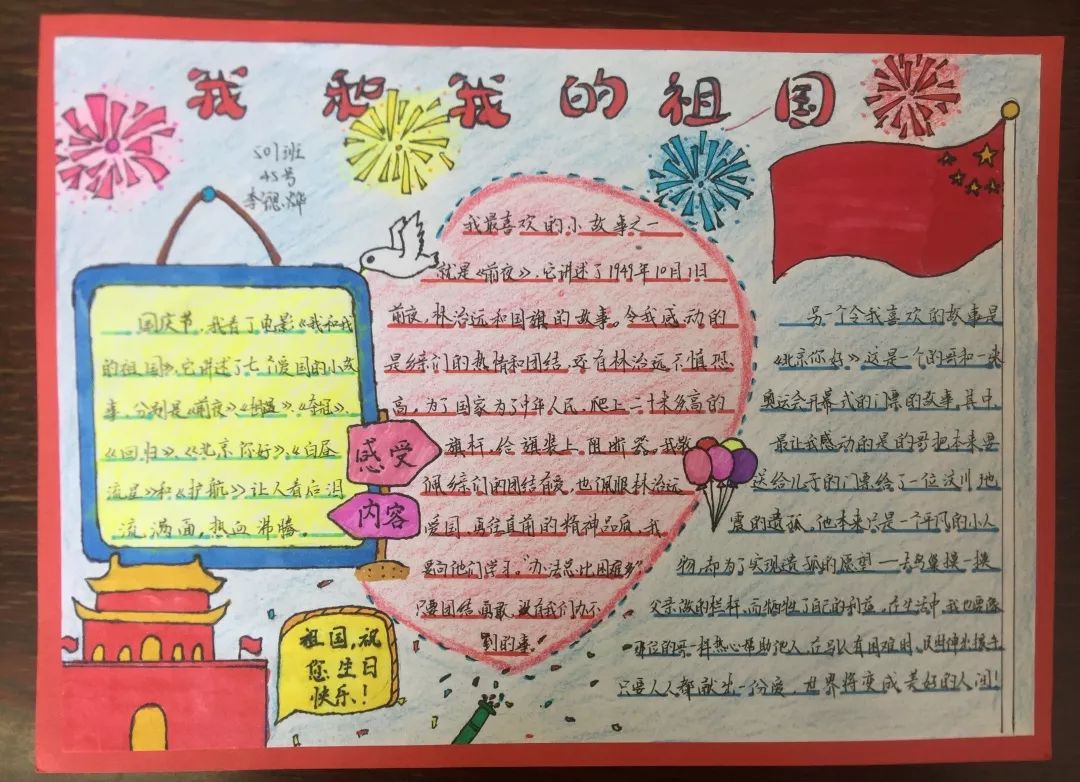 我和我的祖国
501班
45号
李
国庆节,我看了电影《我和我
的祖国》,它讲述了七个爱国的小故
事,分别是《前夜》《相遇》、《夺冠》、
《回归》、《北京你好》、《白昼
流星》和《护航》让人看后泪
流满面,热血沸腾。
感受
内容
祖国,祝
您生日
快乐!
我最喜欢的小故事之一
就是《前夜》,它讲述了1949年10月1日
前夜,林治远和国旗的故事。令我感动的
是乡亲们的热情和团结,还有林治远不惧恐
高,为了国家为了中华人民,爬上二十米多高的
旗杆,给旗装上阻断器。我敬
佩乡亲们的团结有爱,也佩服林治远
爱国,勇往直前的精神品质,我
要向他们学习。"办法总比困难多",
只要团结勇敢,没有我们办不
到的事。
另一个令我喜欢的故事是
《北京你好》这是一个的哥和一张
奥运会开幕式的门票的故事。其中
最让我感动的是的哥把本来要
送给儿子的门票给了一位汶川地
震的遗孤,他本来只是一个平凡的小人
物,却为了实现遗孤的愿望——去鸟巢摸一摸
父亲做的栏杆,而牺牲了自己的利益。在生活中,我也要像
那位的哥一样热心帮助他人,在马队有困难时,及时伸出援手
只要人人都献出一份爱,世界将变成美好的人间!